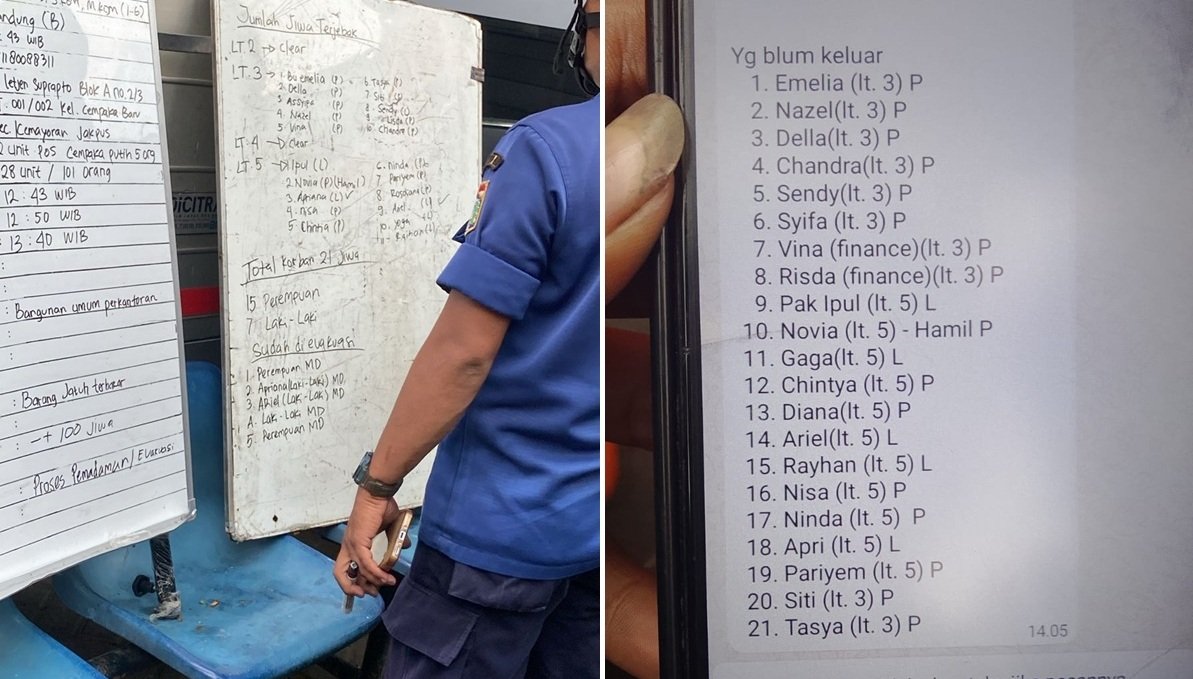 M.Kom (1-6)
andung (B)
43 WIB
1180088311
letjen Suprapto Blok A no.2/3
. 001/002 Kel. Cempaka Baru
ec. Kemayoran Jakpus
2 unit Pos Cempaka putih 5 org
28 unit / 101 orang
12:43 WIB
12:50 WIB
13:40 WIB
:
: Bangunan umum perkantoran
:
:
: Barang Jatuh terbakar
: -+ 100 Jiwa
: Proses Pemadaman / Evakuasi
DICITRA
Jumlah Jiwa Terjebak
LT.2 → Clear
LT.3 → 1. Bu emelia (P) 6. Tasya (P)
2. Della (P) 7. Siti (P)
3. Assyifa (P) 8. Sendy
4. Nazel (P) 9. Risda (P)
5. Vina (P) 10. Chandra (P)
LT.4 → Clear
LT.5 → 1. Ipul (L) 6. ninda
2. Novia (P) (Hamil) 7. Pariyem (P)
3. Apriana (L) ✓ 8. Rosdiana (P)
4. nisa (P) 9. Ariel (L) ✓
5. Chintia (P) 10. Yoga (L)
11. Raihan (L)
Total Korban 21 Jiwa
15 Perempuan
7 Laki-Laki
Sudah di evakuasi
1. Perempuan MD
2. Apriana (Laki-Laki) MD
3. Ariel (Laki-Laki) MD
4. Laki-Laki MD
5. Perempuan MD
Yg blum keluar
1. Emelia (lt. 3) P
2. Nazel(lt. 3) P
3. Della(lt. 3) P
4. Chandra(lt. 3) P
5. Sendy(lt. 3) P
6. Syifa (lt. 3) P
7. Vina (finance)(lt. 3) P
8. Risda (finance)(lt. 3) P
9. Pak Ipul (lt. 5) L
10. Novia (lt. 5) - Hamil P
11. Gaga(lt. 5) L
12. Chintya (lt. 5) P
13. Diana(lt. 5) P
14. Ariel(lt. 5) L
15. Rayhan (lt. 5) L
16. Nisa (lt. 5) P
17. Ninda (lt. 5) P
18. Apri (lt. 5) L
19. Pariyem (lt. 5) P
20. Siti (lt. 3) P
21. Tasya (lt. 3) P
14.05